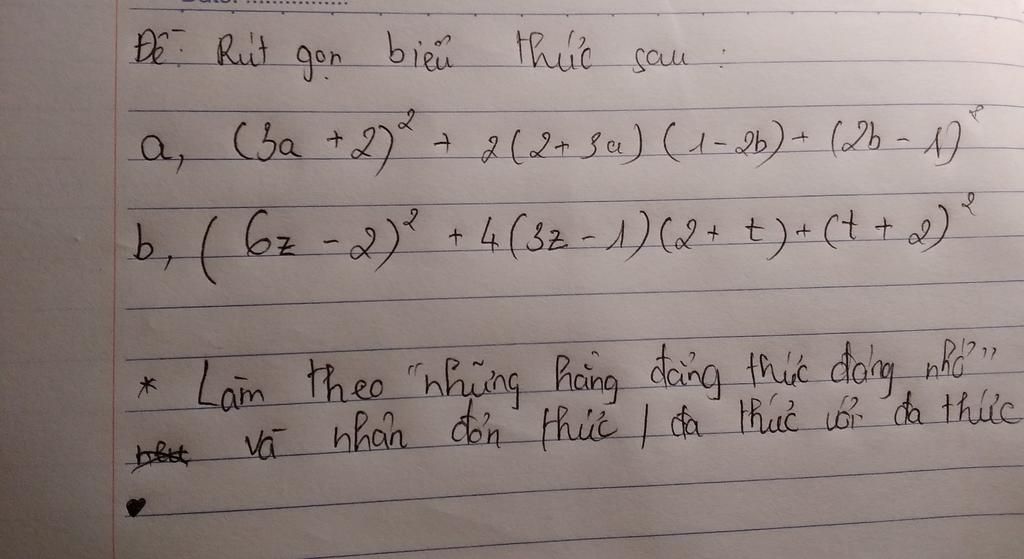 Đề: Rút gọn biểu thức sau :
a, (3a + 2)² + 2(2 + 3a)(1 - 2b) + (2b - 1)²
b, (6z - 2)² + 4(3z - 1)(2 + t) + (t + 2)²
* Làm theo "những hằng đẳng thức đáng nhớ"
và nhân đơn thức / đa thức với đa thức